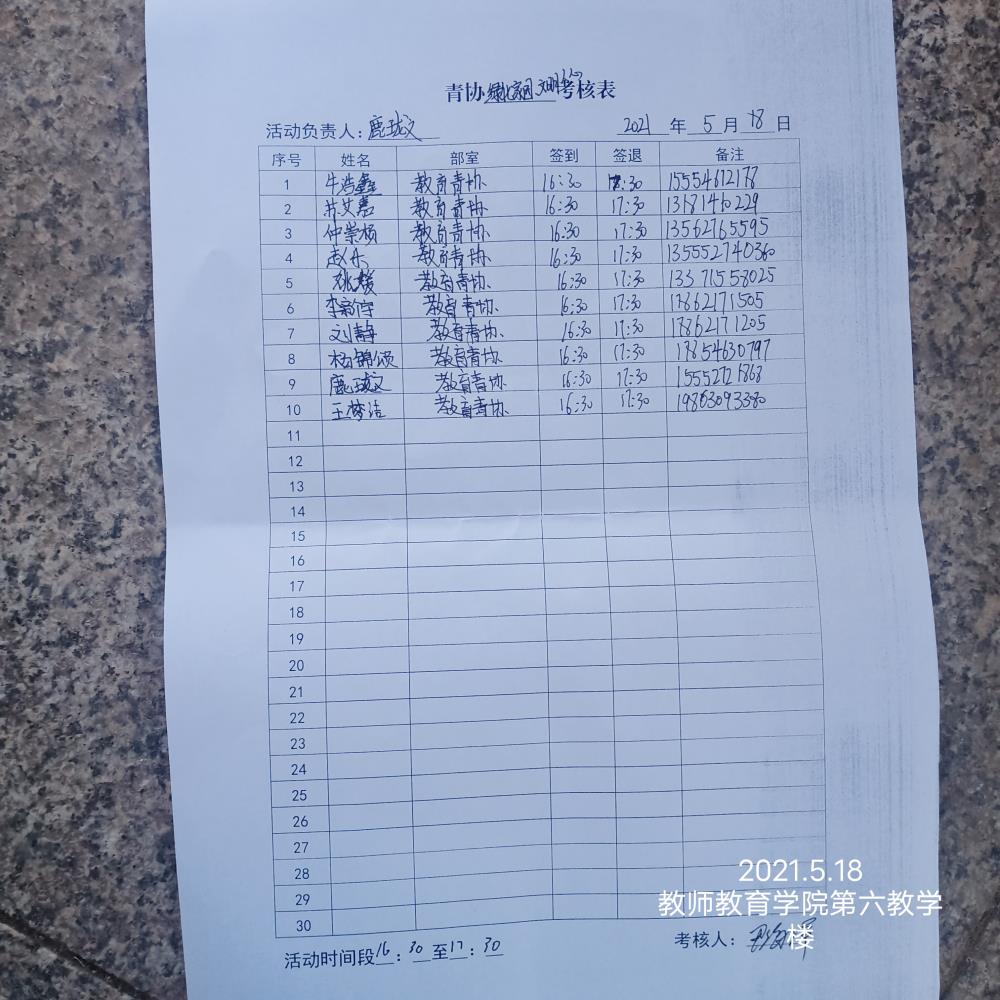 青协绿化家园文明你心考核表
活动负责人：鹿珑文 2021 年 5 月 18 日
序号 姓名 部室 签到 签退 备注
1 牛浩鑫 教育青协 16:30 17:30
2 教育青协 16:30 17:30
3 仲崇杨 教育青协 16:30 17:30 13562765595
4 赵乐 教育青协 16:30 17:30 135552740360
5 姚媛 教育青协 16:30 17:30 13371558025
6 李新宇 教育青协 16:30 17:30 17862171505
7 刘静 教育青协 16:30 17:30 17862171205
8 杨锦颂 教育青协 16:30 17:30 17854630797
9 鹿珑文 教育青协 16:30 17:30
10 王梦洁 教育青协 16:30 17:30 19863093380
11
12
13
14
15
16
17
18
19
20
21
22
23
24
25
26
27
28
29
30
活动时间段16：30至17：30 考核人：
2021.5.18
教师教育学院第六教学
楼